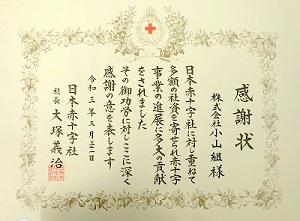 感謝状
株式会社小山組様
日本赤十字社に対し重ねて
多額の社資を寄せられ赤十字
事業の進展に多大の貢献
をされました
その御功労に対しここに深く
感謝の意を表します
令和三年三月三十一日
日本赤十字社
社長 大塚義治